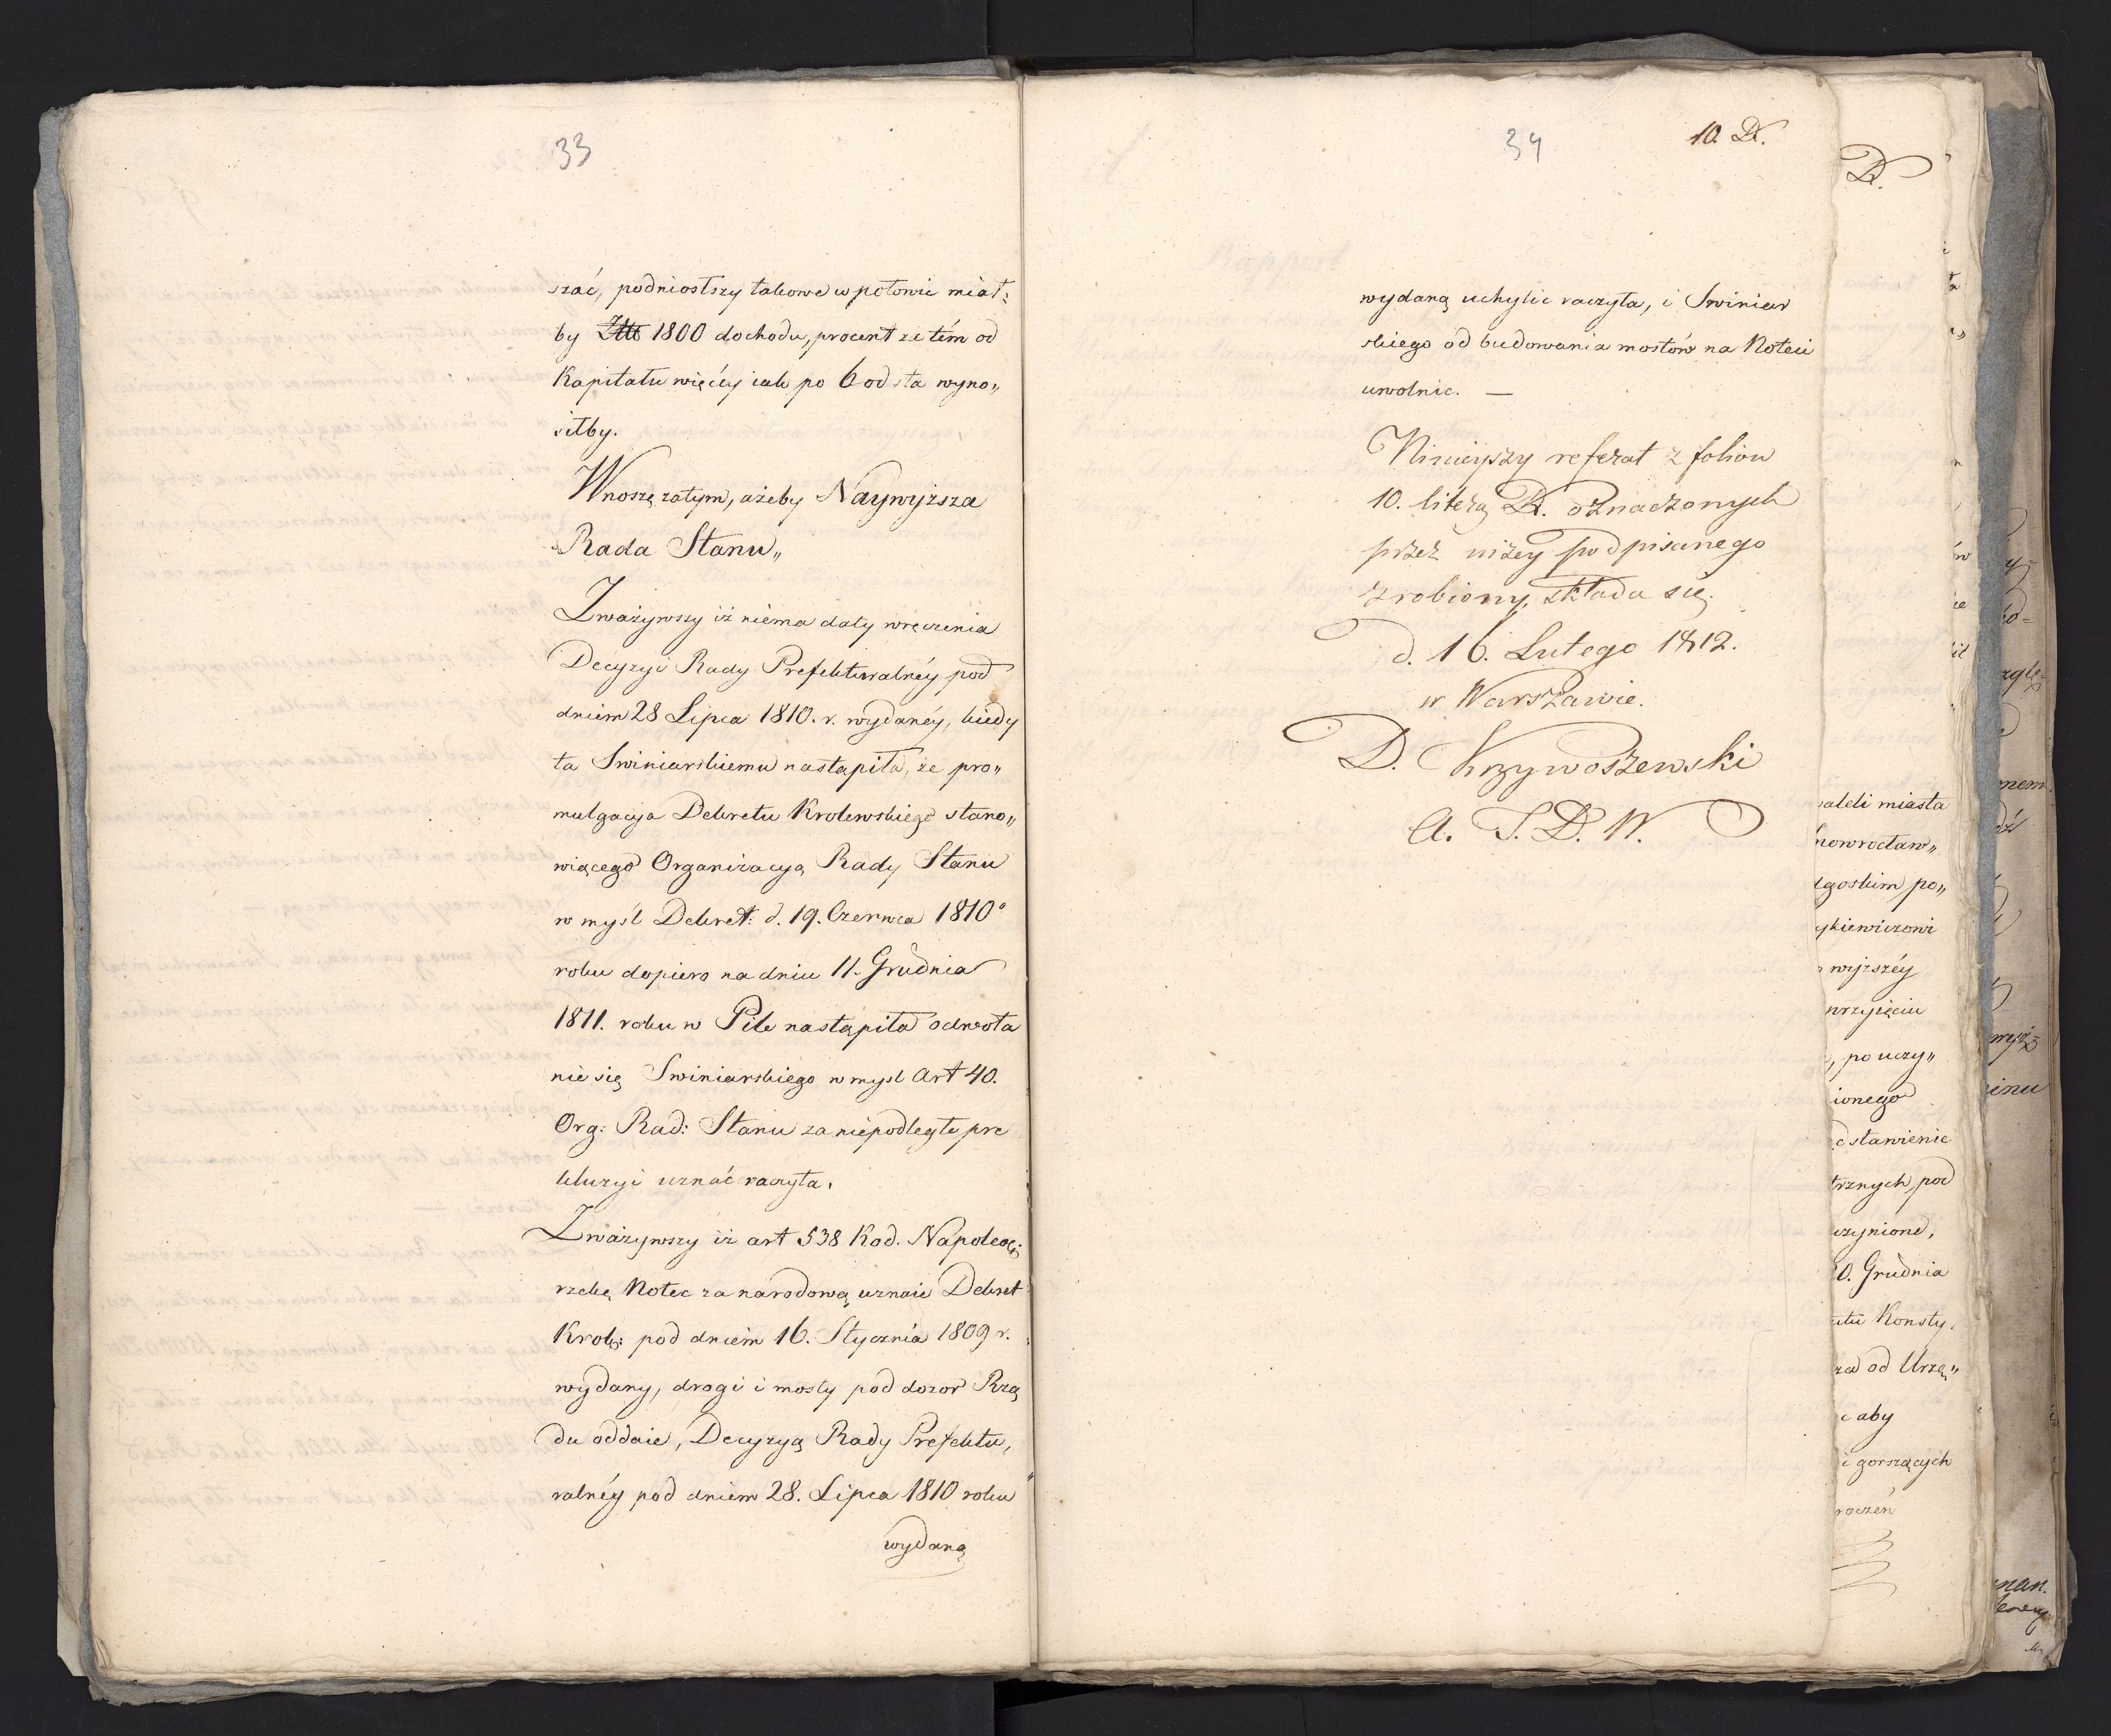 33
szać, podniosłszy takowe w połowie miał„
by 1800 dochodu, procent ze tém od
Kapitału więcéy iak po 6 od sta wyno„
siłby.
Wnoszę zatym, ażeby Naywyższa
Rada Stanu„
Zważywszy iż niema daty wręczenia
Decyzyi Rady Prefekturalnéy pod
dniem 28 Lipca 1810. r. wydanéy, kiedy
ta Swiniarskiemu nastąpiła, że pro„
mulgacya Dekretu Krolewskiego stano„
wiącego Organizacyą Rady Stanu
w myśl Dekret: d. 19. Czerwca 1810
roku dopiero na dniu 11. Grudnia
1811. roku w Pile nastąpiła odwoła
nie się Swiniarskiego w mysl Art 40.
Org: Rad: Stanu za niepodległe pre
kluzyi uznać raczyła.
Zważywszy iż art 538 Kod. Napoleo:
rzekę Notec za narodową uznaie Dekret
Krol: pod dniem 16. Stycznia 1809 r.
wydany, drogi i mosty pod dozor Rzą
du oddaie, Decyzyą Rady Prefektu„
ralnéy pod dniem 28. Lipca 1810 roku
wydaną
34
10. D.
wydaną uchylic raczyła, i Swiniar
skiego od budowania mostów na Noteci
uwolnic. —
Ninieyszy referat z foliow
10. literą D. oznaczonych
przez niżey podpisanego
zrobiony, składa się.
d. 16. Lutego 1812.
w Warszawie.
D. Krzywoszewski
A. S. D. W.
D.
miasta
po„
wyższéy
, po uczy„
pod
0. Grudnia
Konsty.
od Urzę„
aby
i gorszących